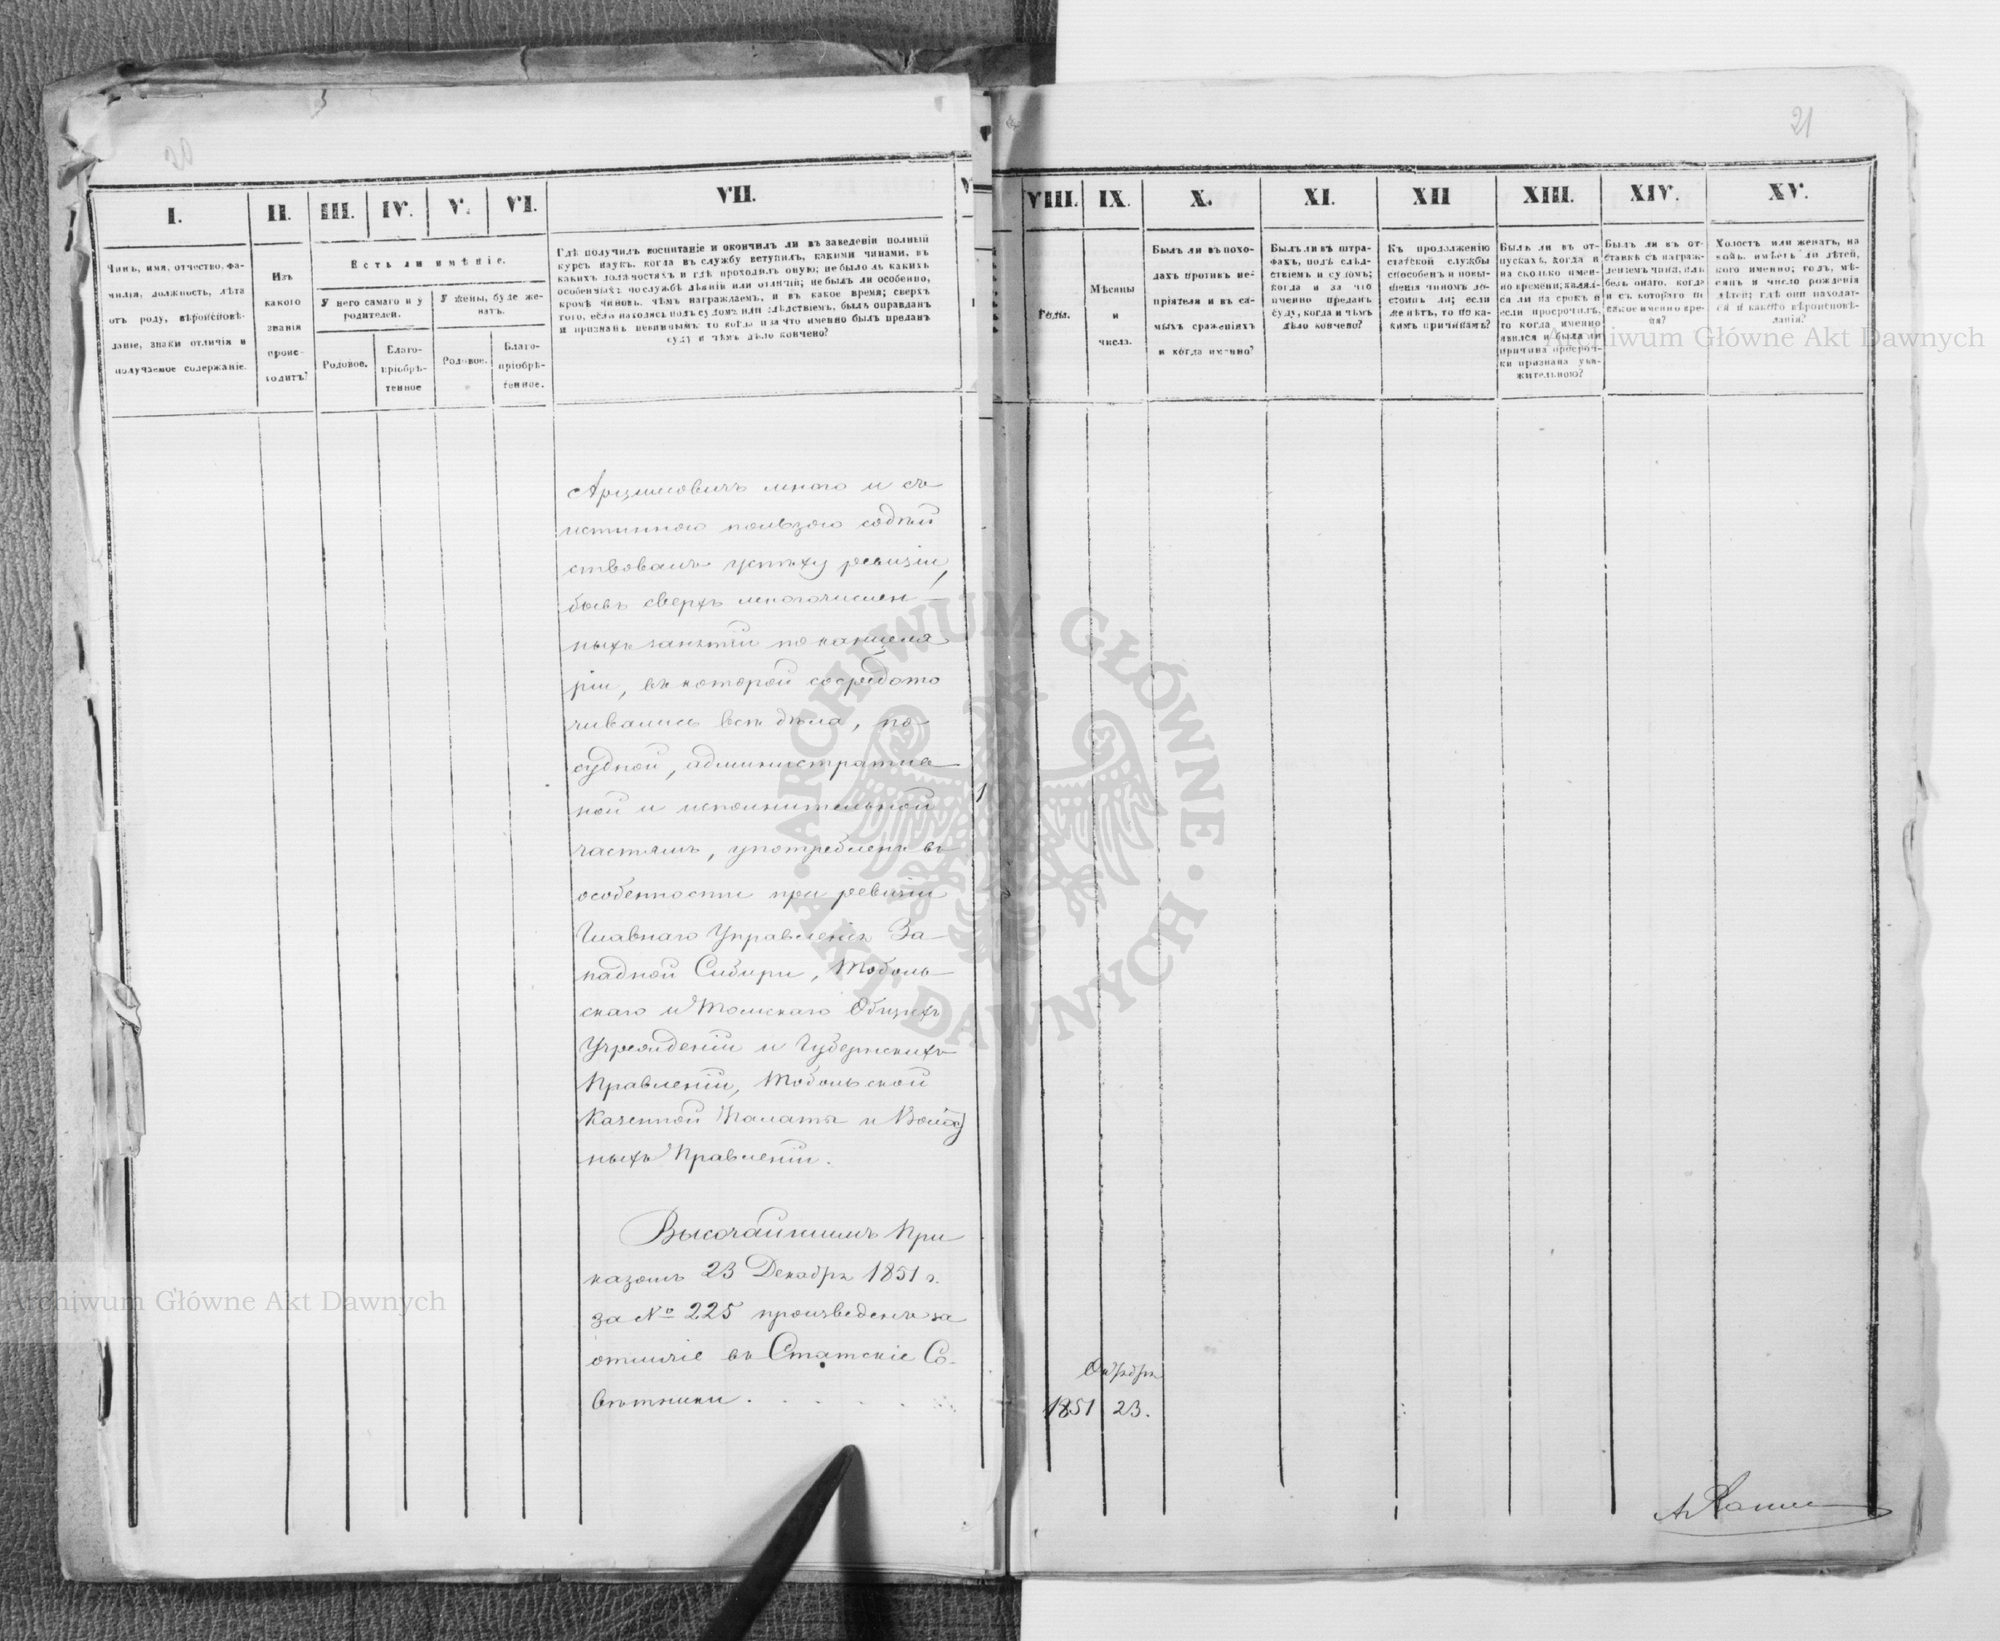 21
I.
II.
III.
IV.
V.
VI.
VII.
VIII.
IX.
X.
XI.
XII
XIII.
XIV.
XV.
Чинъ, имя, отчество, фамилія, должность, лѣта отъ роду, вѣроисповѣданіе, знаки отличія и получаемое содержаніе.
Изъ какого званія происходитъ?
Есть ли имѣніе.
У него самаго и у родителей.
У жены, буде женатъ.
Родовое.
Благопріобрѣтенное
Родовое.
Благопріобрѣтенное.
Гдѣ получилъ воспитаніе и окончилъ ли въ заведеніи полный
курсъ наукъ, когда въ службу вступилъ, какими чинами, въ
какихъ должностяхъ и гдѣ проходилъ оную; не было ль какихъ
особенныхъ по службѣ дѣяній или отличій; не былъ ли особенно,
кромѣ чиновъ, чѣмъ награждаемъ, и въ какое время; сверхъ
того, если находясь подъ судомъ или слѣдствіемъ, былъ оправданъ
и признанъ невиннымъ, то когда и за что именно былъ преданъ
суду и чѣмъ дѣло кончено?
Годы.
Мѣсяцы
и
числа.
Былъ ли въ похо-
дахъ противъ не-
пріятеля и въ са-
мыхъ сраженіяхъ
и когда именно?
Былъ ли въ штра-
фахъ, подъ слѣд-
ствіемъ и судомъ;
когда и за что
именно преданъ
суду, когда и чѣмъ
дѣло кончено?
Къ продолженію
статской службы
способенъ и повы-
шенія чиномъ до-
стоинъ ли; если
же нѣтъ, то по ка-
кимъ причинамъ?
Былъ ли въ от-
пускахъ, когда и
на сколько имен-
но времени; явил-
ся ли на срокъ и
если просрочилъ,
то когда именно
явился и была ли
причина просроч-
ки признана ува-
жительною?
Былъ ли въ от-
ставкѣ съ награж-
деніемъ чина, или
безъ онаго, когда
и съ котораго по
какое именно вре-
мя?
Холостъ или женатъ, на
комъ, имѣетъ ли дѣтей,
кого именно; годъ, мѣ-
сяцъ и число рожденія
дѣтей; гдѣ они находят-
ся и какого вѣроисповѣ-
данія?
Арцимовичъ много и съ
истинною пользою содѣй
ствовалъ успѣху ревизіи,
бывъ сверхъ многочислен-
ныхъ занятій по канцеля
ріи, въ которой сосредото
чивались всѣ дѣла, по
судной, административ-
ной и исполнительной
частямъ, употребленъ въ
особенности при ревизіи
Главнаго Управленія За-
падной Сибири, Тоболь-
скаго и Томскаго Общихъ
Учрежденій и Губернскихъ
Правленій, Тобольской
Казенной Палаты и
ныхъ Правленій.
Высочайшимъ При
казомъ 23 Декабря 1851 г.
за № 225 произведенъ за
отличіе въ Статскіе Со-
вѣтники.
1851
23.
ARCHIWUM GŁÓWNE · AKT DAWNYCH ·
Archiwum Główne Akt Dawnych
Archiwum Główne Akt Dawnych